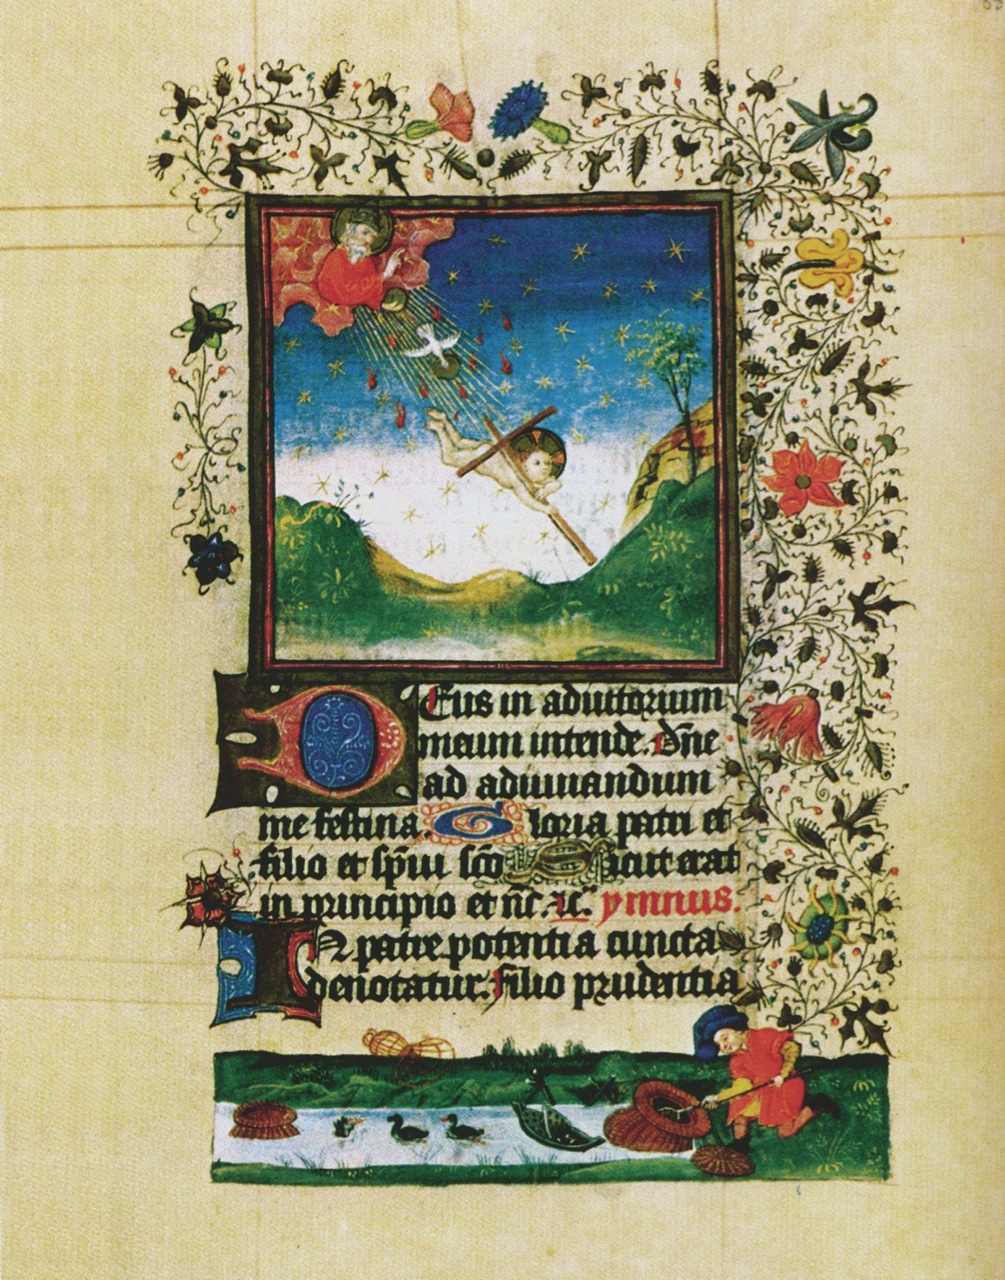 DEus in adiutorium
meum intende. Dñe
ad adiuuandum
me festina. Gloria patri et
filio et sp̃ui sc̃o Sicut erat
in principio et nc̃. ⁊c̃. ymnus.
IN patre potentia cuncta
denotatur. filio prudentia